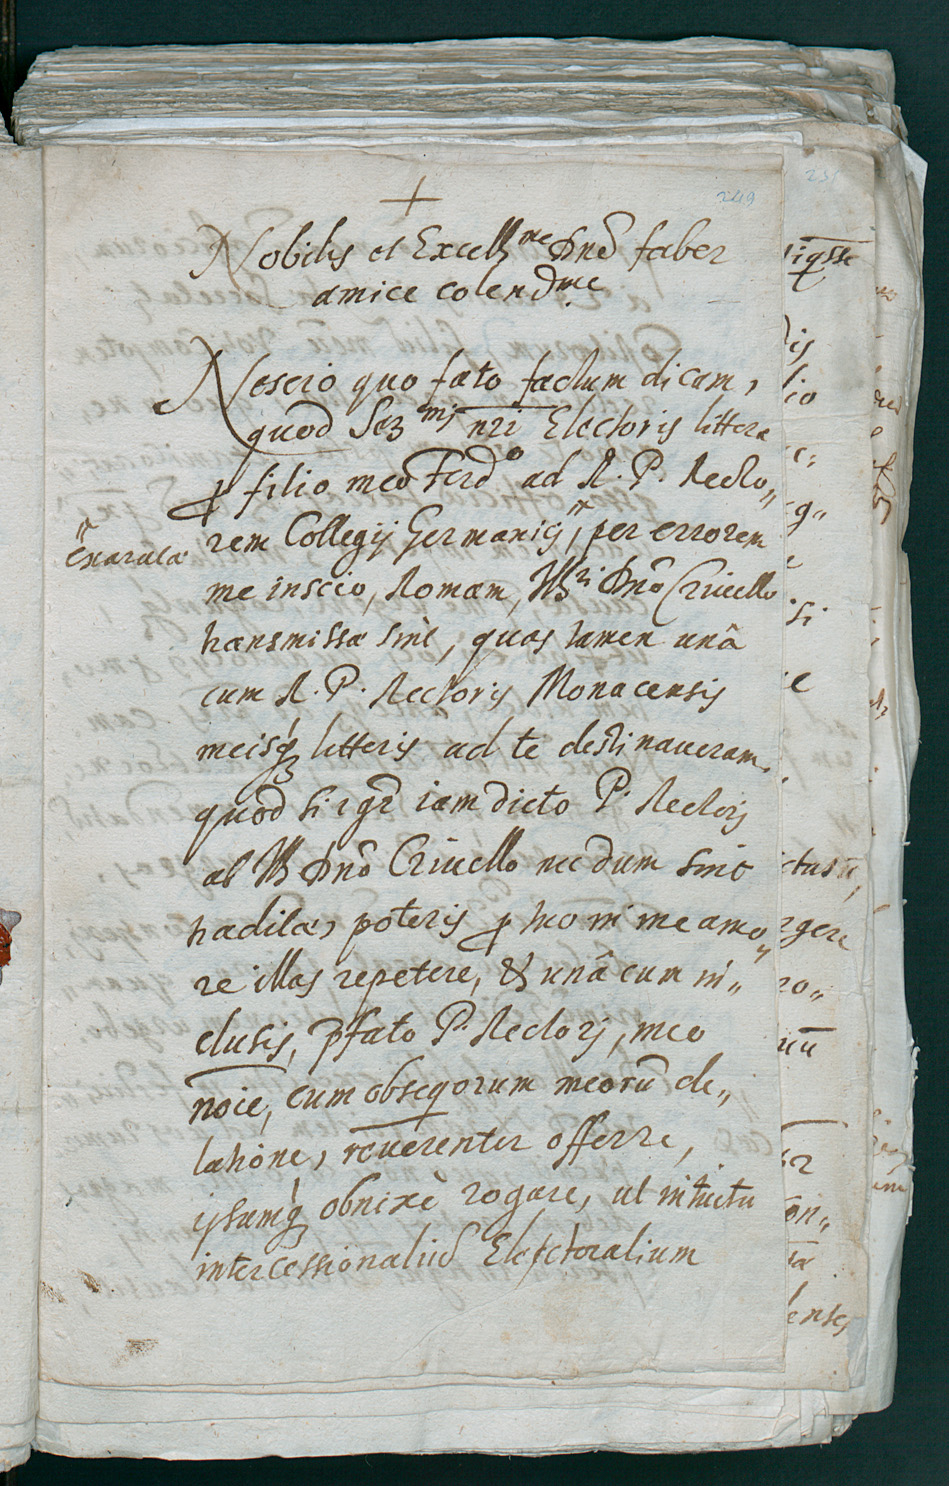 +
249
Nobilis et Excell.me Dne faber
amice colendme
Nescio quo fato factum dicam,
quod Ser.mi nri Electoris littera
p filio meo Ferd.o ad R. P. Recto„
rem Collegij Germanici, per errorem
exarata
me inscio, Romam, Ill.ri Dno Crivello
transmissa sint, quas tamen unâ
cum R. P. Rectoris Monacensis
meisq litteris ad te destinaueram.
quod si igr iam dicto P. Rectori
ab Ill Dno Criuello necdum sint
tradita, poteris p tuo in me amo„
re illas repetere, & unâ cum in„
clusis, pfato P. Rectorj, meo
noie, cum obseqorum meorū de„
latione, reuerenter offerre,
ipsumq obnixè rogare, ut intuitu
intercessionaliū Electoralium